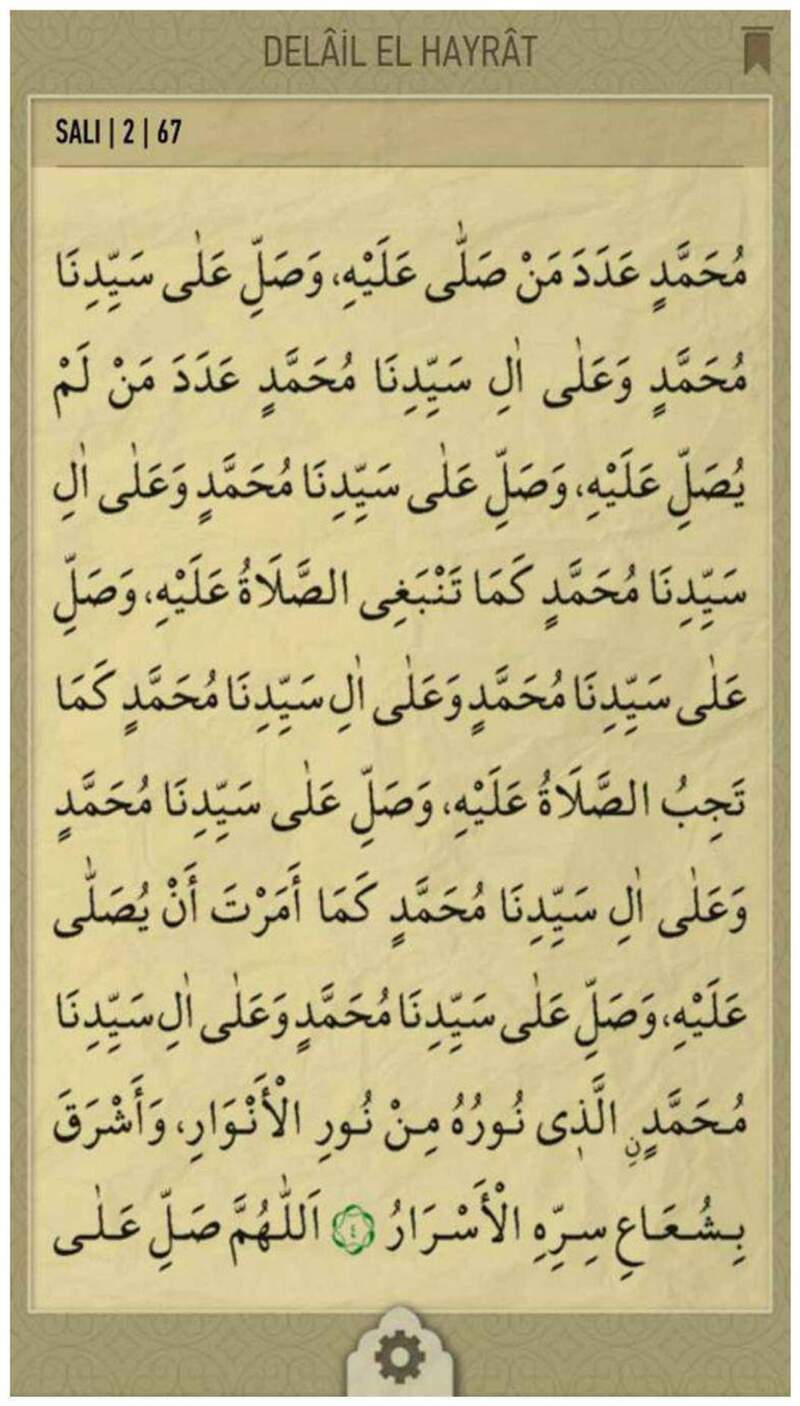 DELÂİL EL HAYRÂT
SALI | 2 | 67
مُحَمَّدٍ عَدَدَ مَنْ صَلّٰى عَلَيْهِ، وَصَلِّ عَلٰى سَيِّدِنَا
مُحَمَّدٍ وَعَلٰى اٰلِ سَيِّدِنَا مُحَمَّدٍ عَدَدَ مَنْ لَمْ
يُصَلِّ عَلَيْهِ، وَصَلِّ عَلٰى سَيِّدِنَا مُحَمَّدٍ وَعَلٰى اٰلِ
سَيِّدِنَا مُحَمَّدٍ كَمَا تَنْبَغِى الصَّلَاةُ عَلَيْهِ، وَصَلِّ
عَلٰى سَيِّدِنَا مُحَمَّدٍ وَعَلٰى اٰلِ سَيِّدِنَا مُحَمَّدٍ كَمَا
تَجِبُ الصَّلَاةُ عَلَيْهِ، وَصَلِّ عَلٰى سَيِّدِنَا مُحَمَّدٍ
وَعَلٰى اٰلِ سَيِّدِنَا مُحَمَّدٍ كَمَا أَمَرْتَ أَنْ يُصَلّٰى
عَلَيْهِ، وَصَلِّ عَلٰى سَيِّدِنَا مُحَمَّدٍ وَعَلٰى اٰلِ سَيِّدِنَا
مُحَمَّدٍ نِ الَّذٖى نُورُهُ مِنْ نُورِ الْأَنْوَارِ، وَأَشْرَقَ
بِشُعَاعِ سِرِّهِ الْأَسْرَارُ ٤ اَللّٰهُمَّ صَلِّ عَلٰى